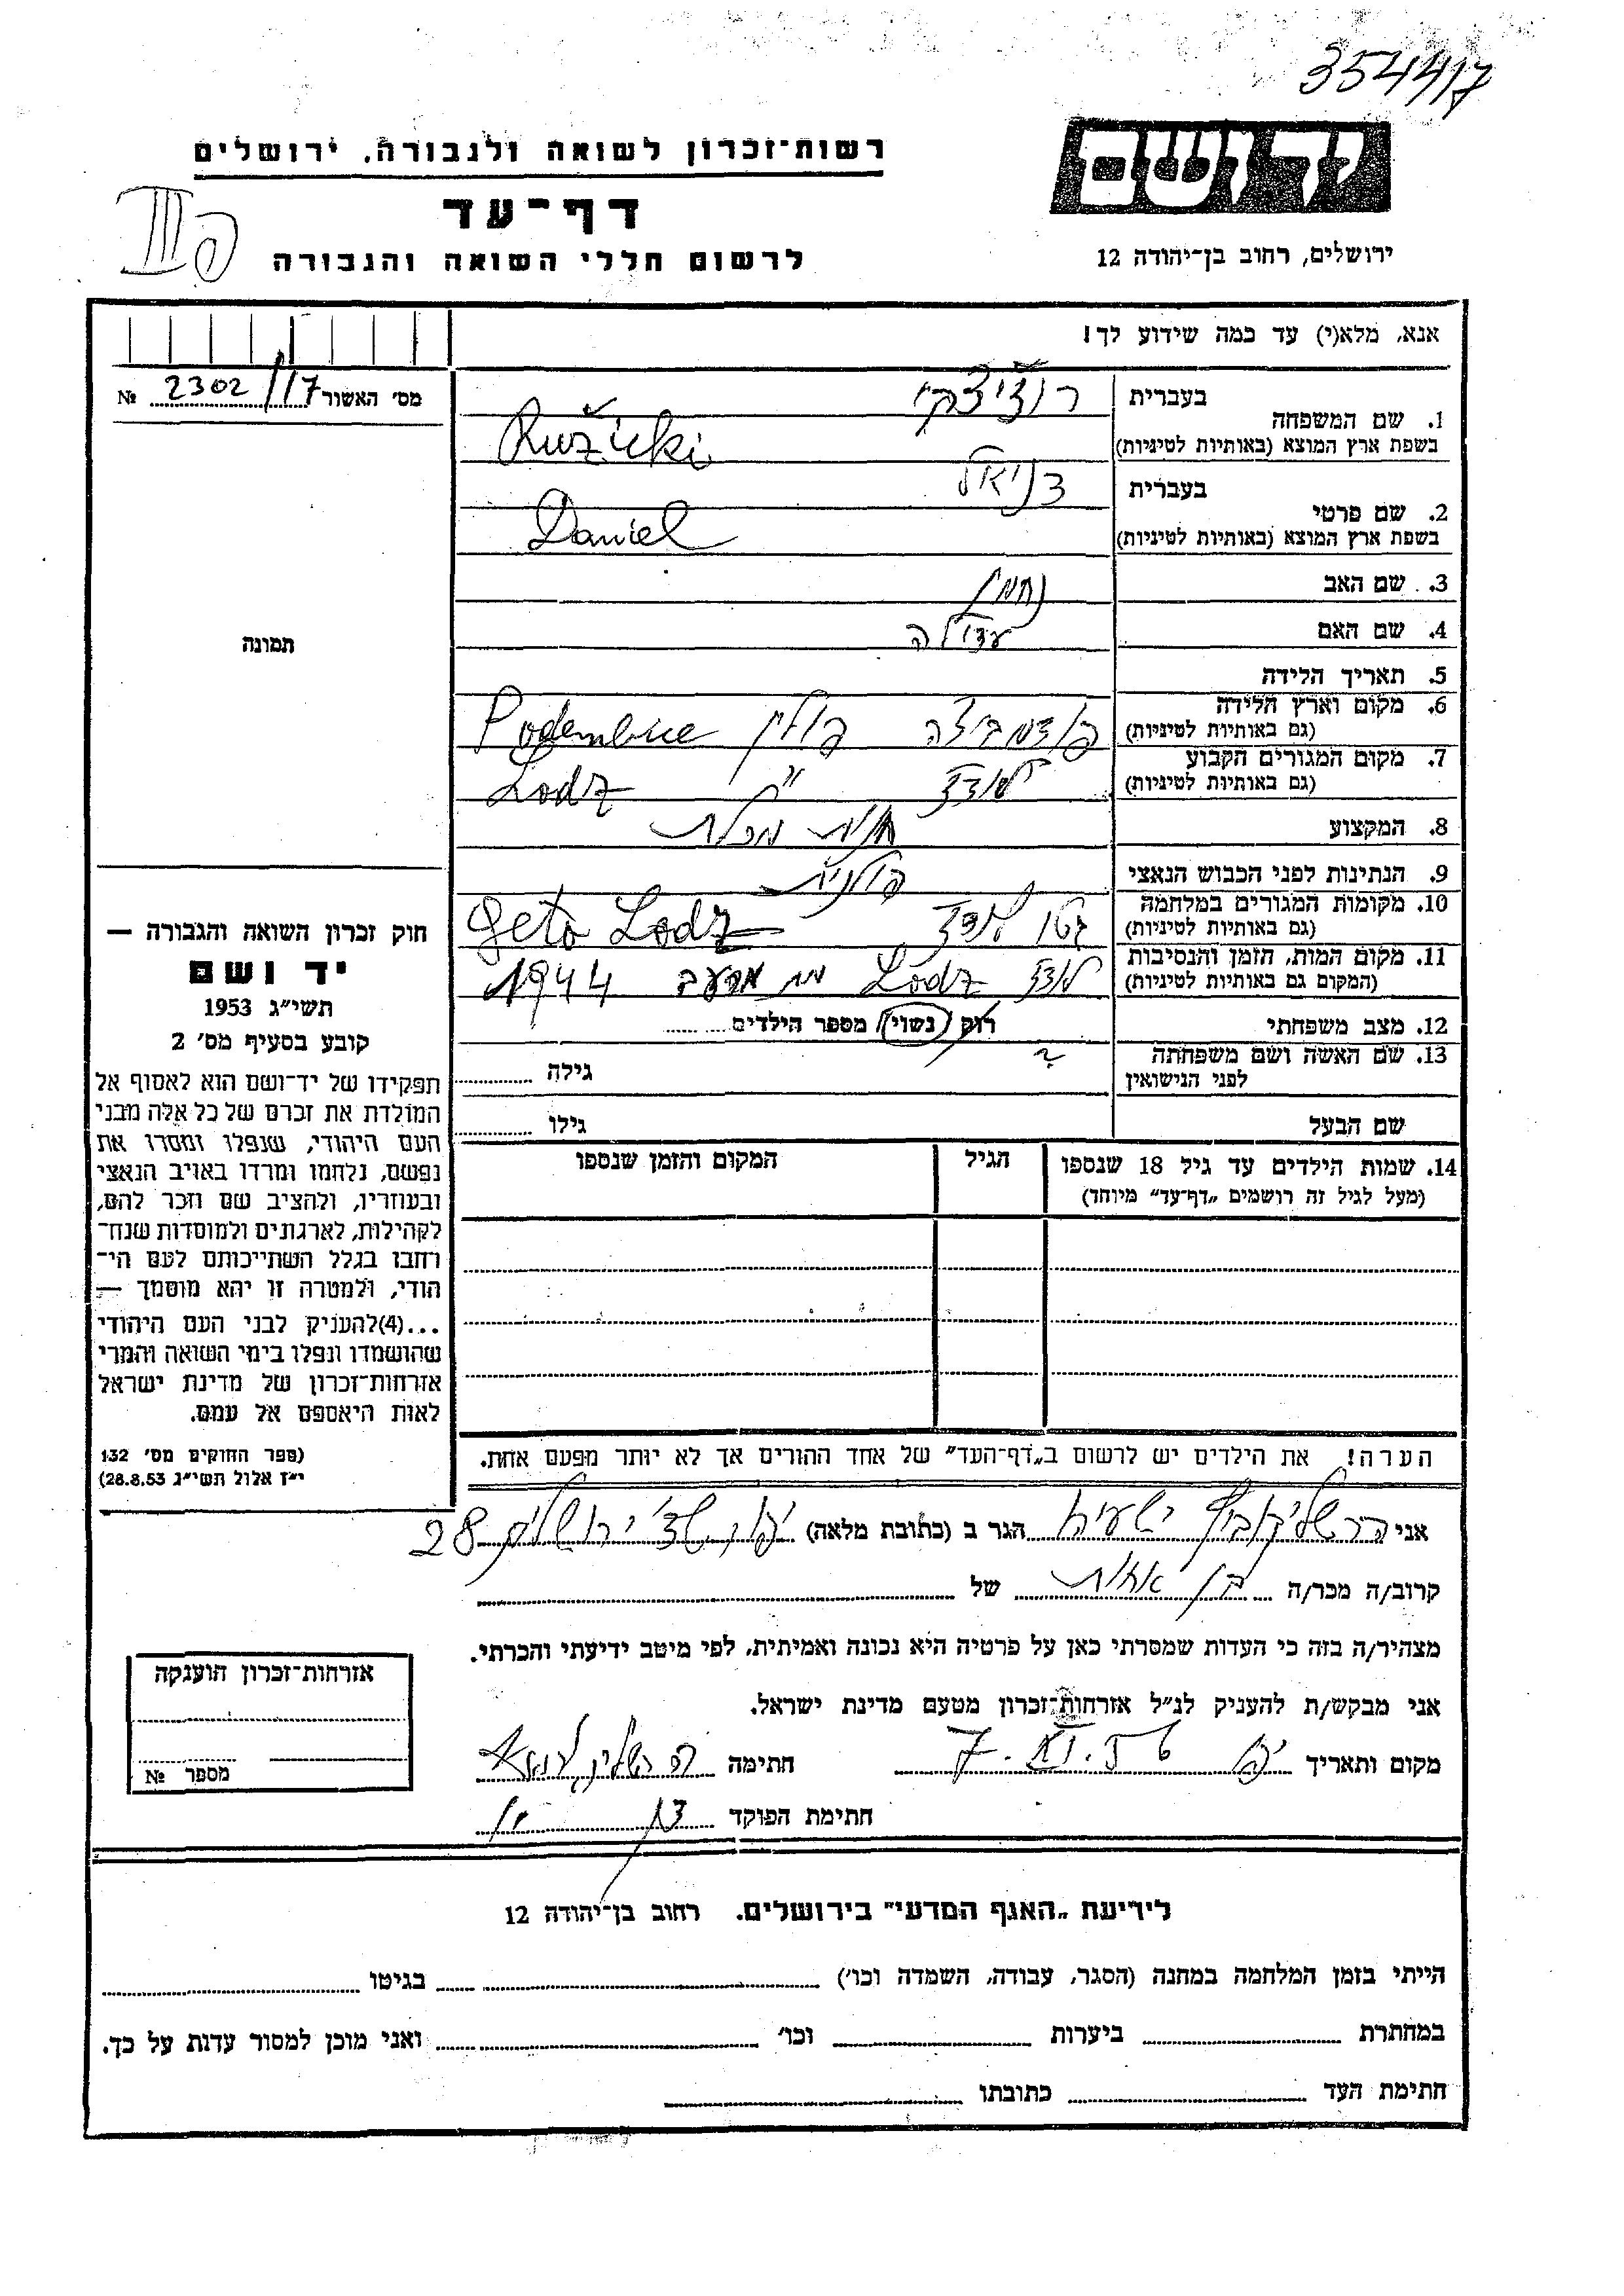 354417
יד ושם
רשות-זכרון לשואה ולגבורה, ירושלים
דף-עד
לרשום חללי השואה והגבורה
III
ירושלים, רחוב בן-יהודה 12
אנא, מלא(י) עד כמה שידוע לך!
מס׳ האשור 2302/17 №
1. שם המשפחה
בעברית
בשפת ארץ המוצא (באותיות לטיניות)
Ružicki
2. שם פרטי
בעברית דניאל
בשפת ארץ המוצא (באותיות לטיניות)
Daniel
3. שם האב נחמן
4. שם האם
תמונה
5. תאריך הלידה
6. מקום וארץ הלידה
(גם באותיות לטיניות)
פולין
7. מקום המגורים הקבוע
(גם באותיות לטיניות)
לודז׳ Lodz
8. המקצוע חנות מכולת
9. הנתינות לפני הכבוש הנאצי פולנית
10. מקומות המגורים במלחמה
(גם באותיות לטיניות)
גטו לודז׳ Geto Lodz
11. מקום המות, הזמן והנסיבות
(המקום גם באותיות לטיניות)
לודז׳ Lodz מת מרעב 1944
12. מצב משפחתי רוק (נשוי) מספר הילדים
13. שם האשה ושם משפחתה
לפני הנישואין
? גילה
שם הבעל גילו
14. שמות הילדים עד גיל 18 שנספו
(מעל לגיל זה רושמים „דף-עד״ מיוחד)
הגיל
המקום והזמן שנספו
חוק זכרון השואה והגבורה —
יד ושם
תשי״ג 1953
קובע בסעיף מס׳ 2
תפקידו של יד-ושם הוא לאסוף אל
המולדת את זכרם של כל אלה מבני
העם היהודי, שנפלו ומסרו את
נפשם, נלחמו ומרדו באויב הנאצי
ובעוזריו, ולהציב שם וזכר להם,
לקהילות, לארגונים ולמוסדות שנח-
רחבו בגלל השתייכותם לעם הי-
הודי, ולמטרה זו יהא מוסמך —
...(4)להעניק לבני העם היהודי
שהושמדו ונפלו בימי השואה והמרי
אזרחות-זכרון של מדינת ישראל
לאות היאספם אל עמם.
(ספר החוקים מס׳ 132
י״ז אלול תשי״ג 28.8.53)
הערה! את הילדים יש לרשום ב„דף-העד״ של אחד ההורים אך לא יותר מפעם אחת.
אני ישעיהו הגר ב (כתובת מלאה) יפו, שד׳ ירושלים 28
קרוב/ה מכר/ה בן אחות של
מצהיר/ה בזה כי העדות שמסרתי כאן על פרטיה היא נכונה ואמיתית, לפי מיטב ידיעתי והכרתי.
אני מבקש/ת להעניק לנ״ל אזרחות-זכרון מטעם מדינת ישראל.
מקום ותאריך יפו חתימה
חתימת הפוקד
אזרחות-זכרון הוענקה
מספר №
לידיעת „האגף המדעי״ בירושלים. רחוב בן-יהודה 12
הייתי בזמן המלחמה במחנה (הסגר, עבודה, השמדה וכו׳) בגיטו
במחתרת ביערות וכו׳ ואני מוכן למסור עדות על כך.
חתימת העד כתובתו